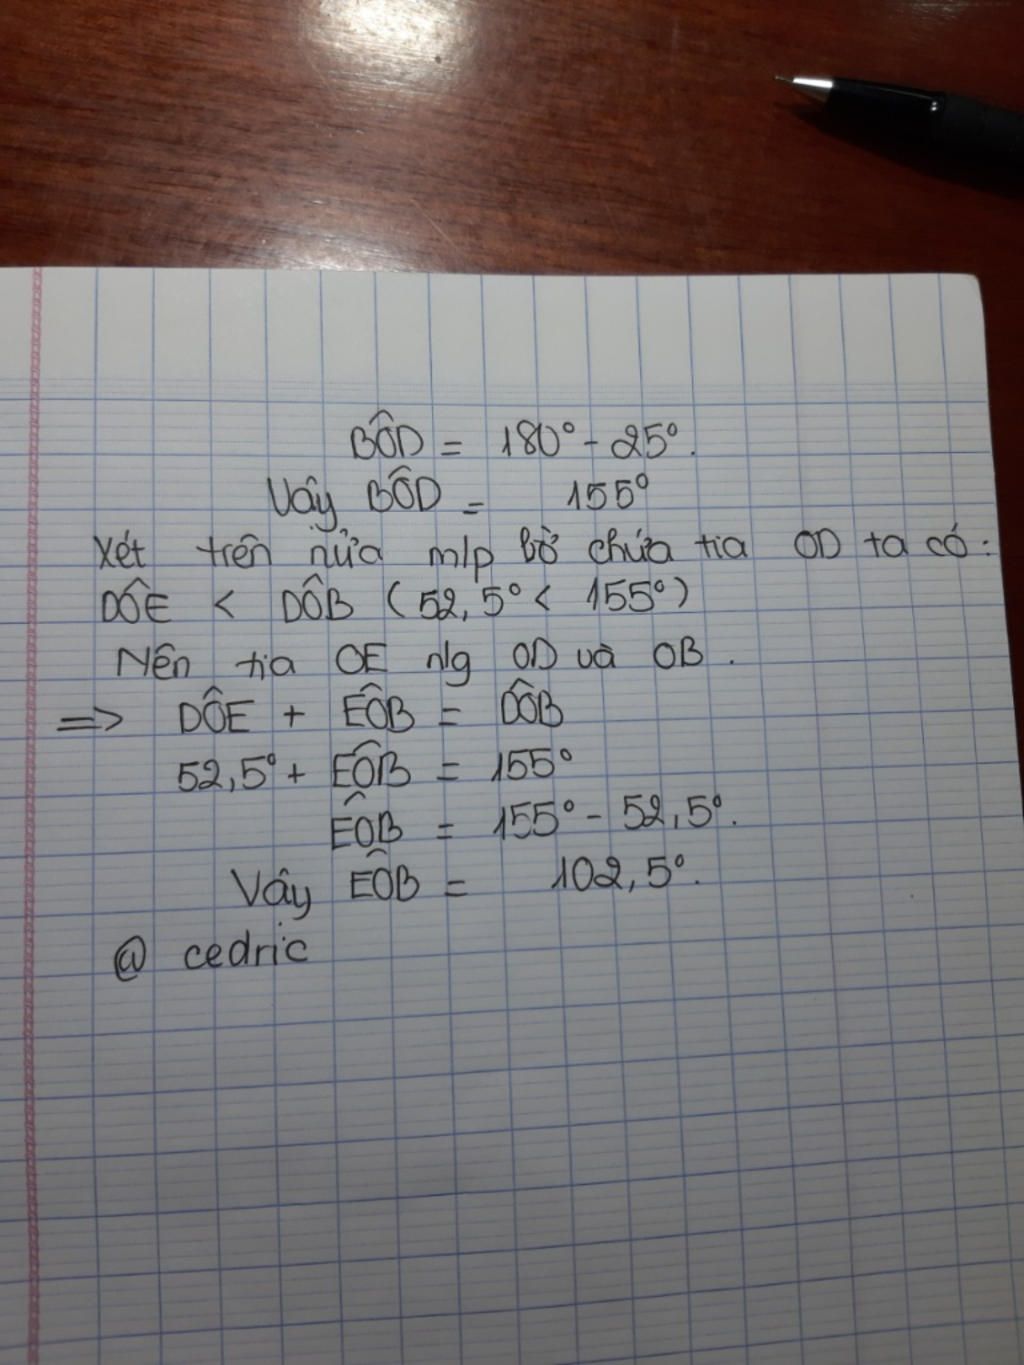 BÔD = 180° - 25°.
Vậy BÔD = 155°
Xét trên nửa m/p bờ chứa tia OD ta có:
DÔE < DÔB (52,5° < 155°)
Nên tia OE n/g OD và OB.
=> DÔE + EÔB = DÔB
52,5° + EÔB = 155°
EÔB = 155° - 52,5°.
Vậy EÔB = 102,5°.
@ cedric